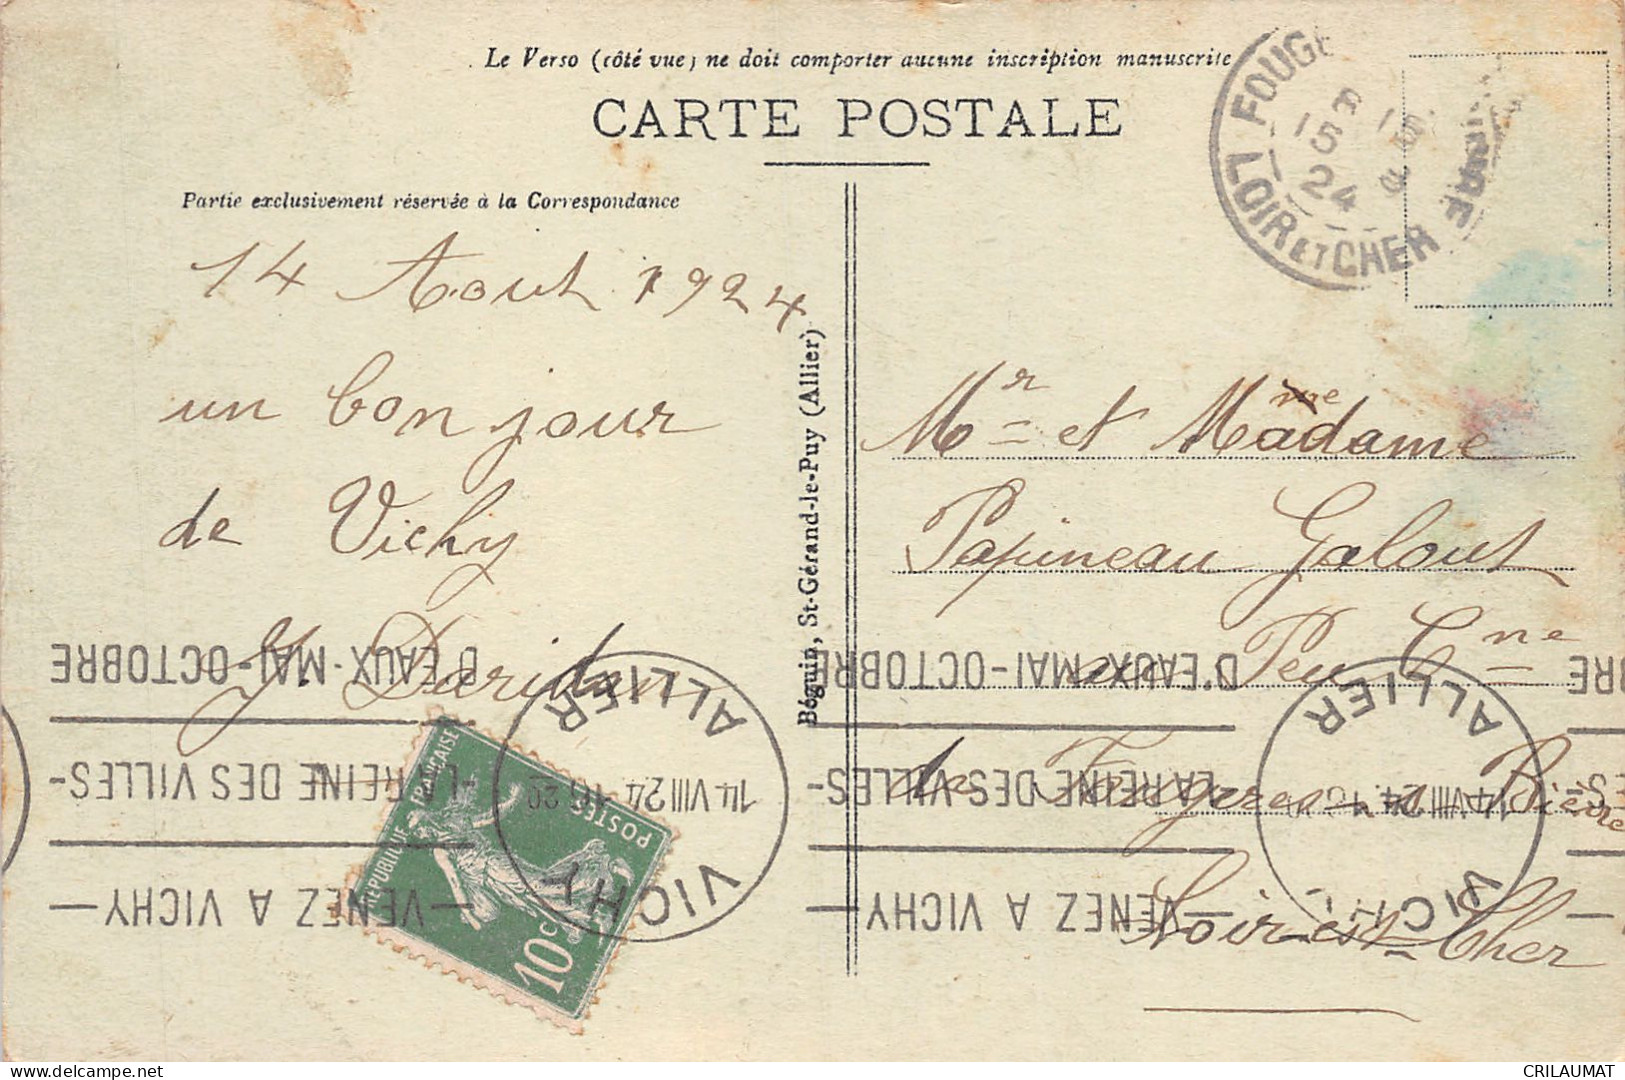 Le Verso (côté vue) ne doit comporter aucune inscription manuscrite
CARTE POSTALE
FOUGÈ
LOIR ET CHER
15
24
Partie exclusivement réservée à la Correspondance
14 Aout 1924
un bonjour
de Vichy
Béguin, St-Gérand-le-Puy (Allier)
Mr et Mme Madame
Papineau Galout
au Peu Cne
de Fougeres Bievre
Loir et Cher
D'EAUX-MAI-OCTOBRE
LA REINE DES VILLES-
—VENEZ A VICHY—
VICHY
ALLIER
14 VIII 24 16 20
D'EAUX-MAI-OCTOBRE
LA REINE DES VILLES-
—VENEZ A VICHY—
VICHY
ALLIER
14 VIII 24
RÉPUBLIQUE FRANÇAISE
POSTES
10c
delcampe.net
CRILAUMAT